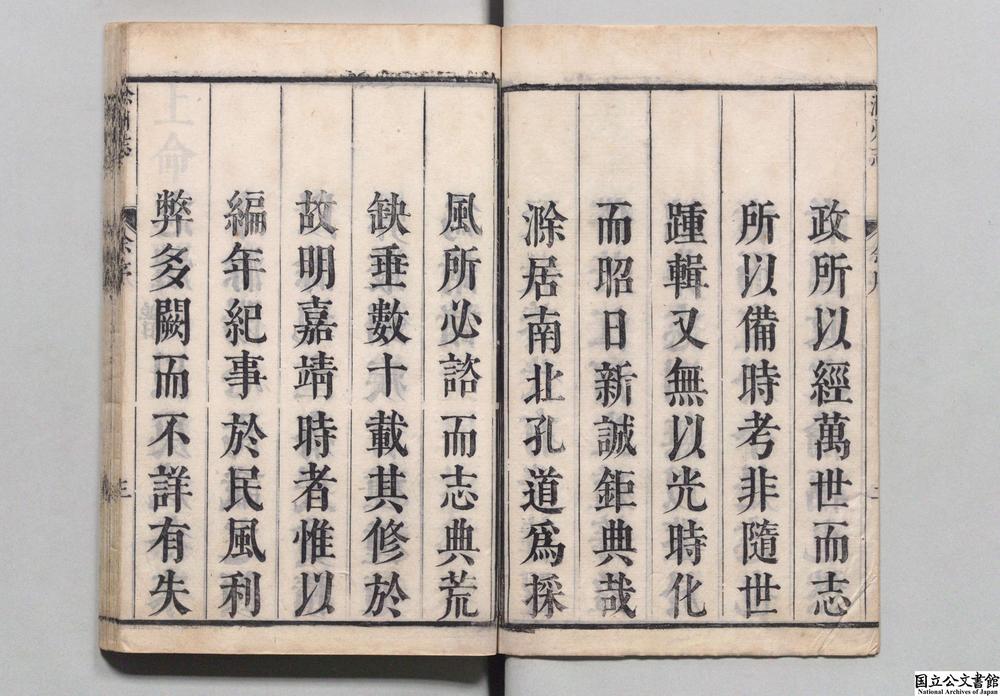 政所以經萬世而志
所以備時考非隨世
踵輯又無以光時化
而昭日新誠鉅典哉
滁居南北孔道爲採
風所必諮而志典荒
缺垂數十載其修於
故明嘉靖時者惟以
編年紀事於民風利
弊多闕而不詳有失
三
国立公文書館
National Archives of Japan